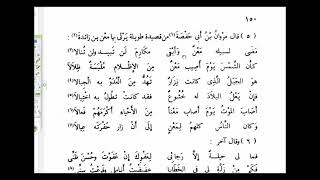 ١٥٠
(٥) قال مروان بن أبي حفصة (١) من قصيدة طويلة يرثي بها معن بن زائدة (٢) :
مَضَى لسبيله مَعْنٌ وَأَبْقَى مَكَارِمَ لَنْ تَبِيدَ وَلَنْ تُنَالَا (٣)
كأَنَّ الشَّمْسَ يَوْمَ أُصِيبَ مَعْنٌ مِنَ الإِظْلَامِ مُلْبَسَةٌ ظِلَالَا
هو الجَبَلُ الَّذِي كانَتْ نِزَارٌ تَهُدُّ مِنَ العَدُوِّ بِهِ الجِبَالَا
فإِنْ يَعْلُ البِلَادَ لَهُ خُشُوعٌ فَقَد كانَتْ تَطُولُ بِهِ اخْتِيَالَا
أَصَابَ المَوْتُ يَوْمَ أَصَابَ مَعْنًا مِنَ الأَحْيَاءِ أَكْرَمَهُمْ فَعَالَا
وكان النَّاسُ كلُّهُمُ لِمَعْنٍ إِلَى أَنْ زَارَ حُفْرَتَهُ عِيَالَا
(٦) وقال آخر :
فما لِي حِيلَةٌ إِلَّا رَجَائِي لِعَفْوِكَ إِنْ عَفَوْتَ وَحُسْنُ ظَنِّي
فَكَمْ مِنْ زَلَّةٍ لِي فِي الخَطَايَا